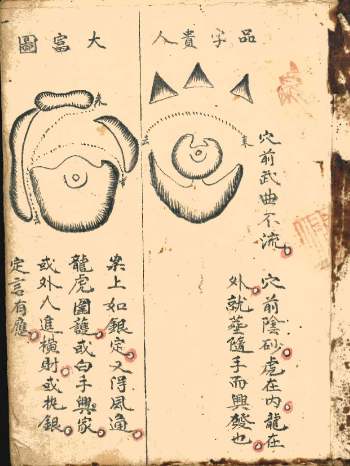 品字貴人
來
去
穴前武曲不流
穴前陰砂虎在內龍在
外就塟隨手而興發也
大富圖
來
案上如銀定又得風通
龍虎圍護或白手興家
或外人進橫財或銀
定言有應